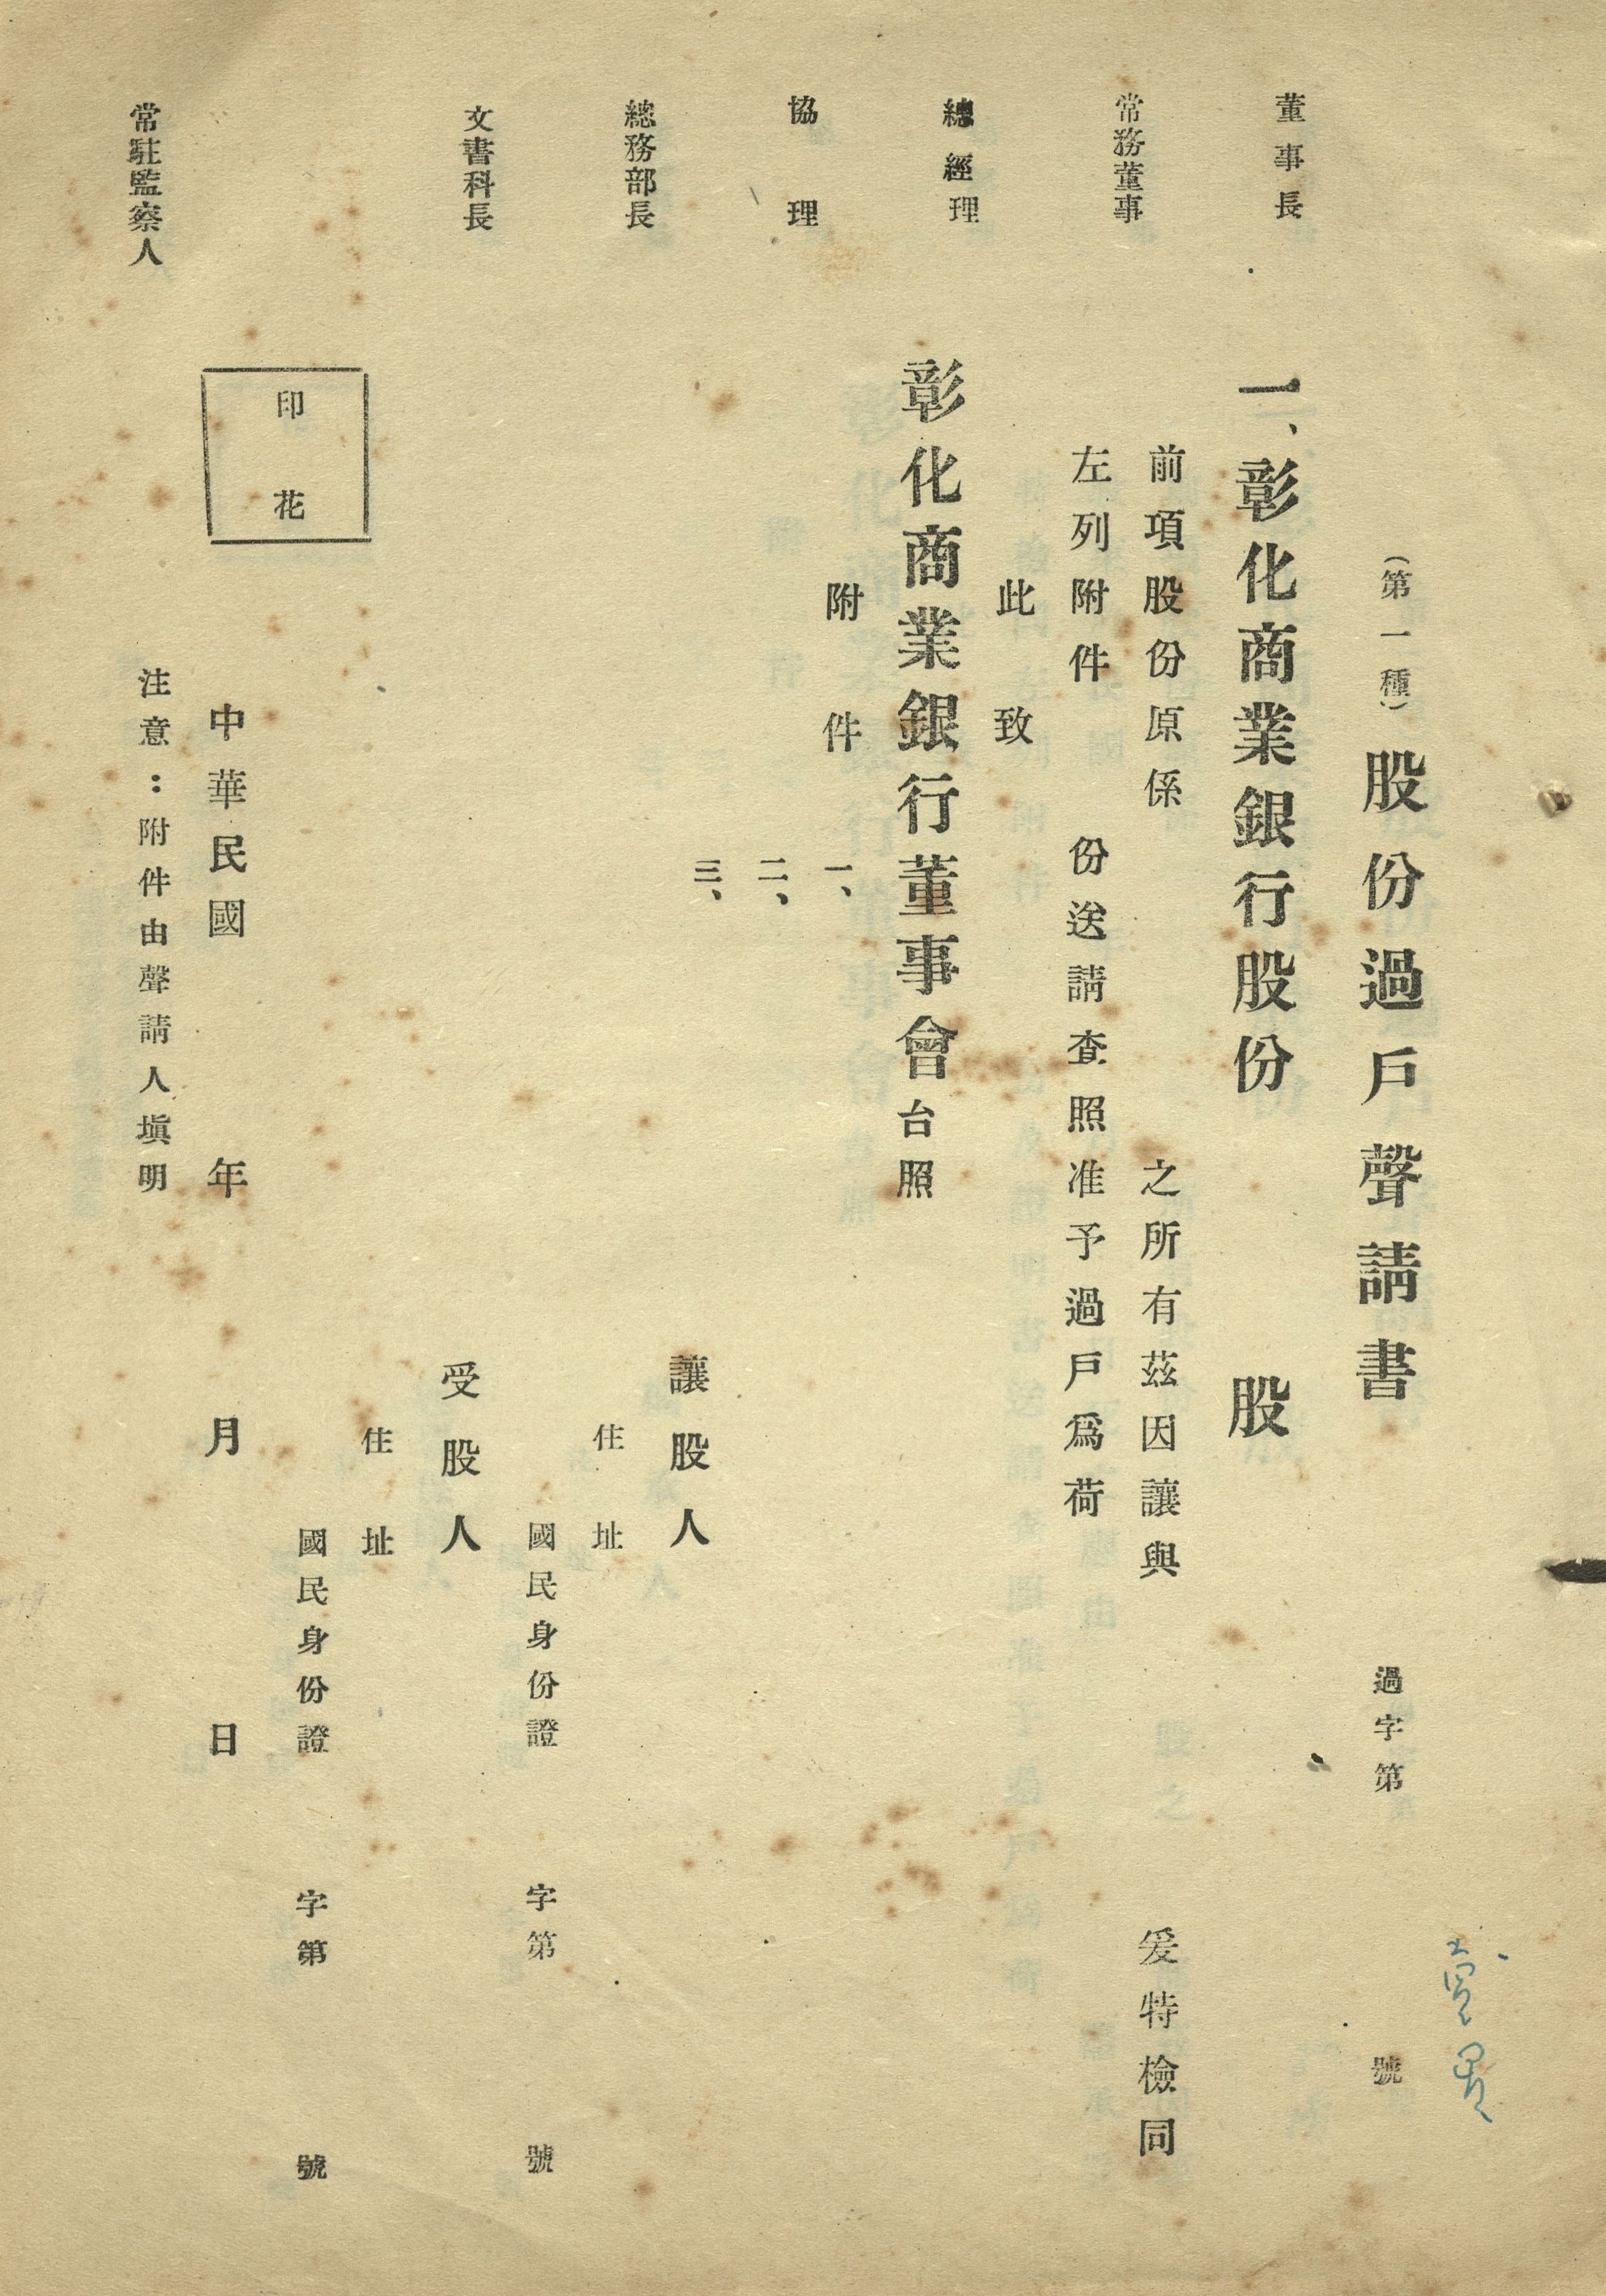 (第一種)股份過戶聲請書 過字第 號
一、彰化商業銀行股份 股
前項股份原係 之所有茲因讓與 爰特檢同
左列附件 份送請查照准予過戶爲荷
此致
彰化商業銀行董事會台照
附件 一、
二、
三、
讓股人
住址
國民身份證 字第 號
受股人
住址
國民身份證 字第 號
印花
中華民國 年 月 日
注意：附件由聲請人塡明
董事長
常務董事
總經理
協理
總務部長
文書科長
常駐監察人